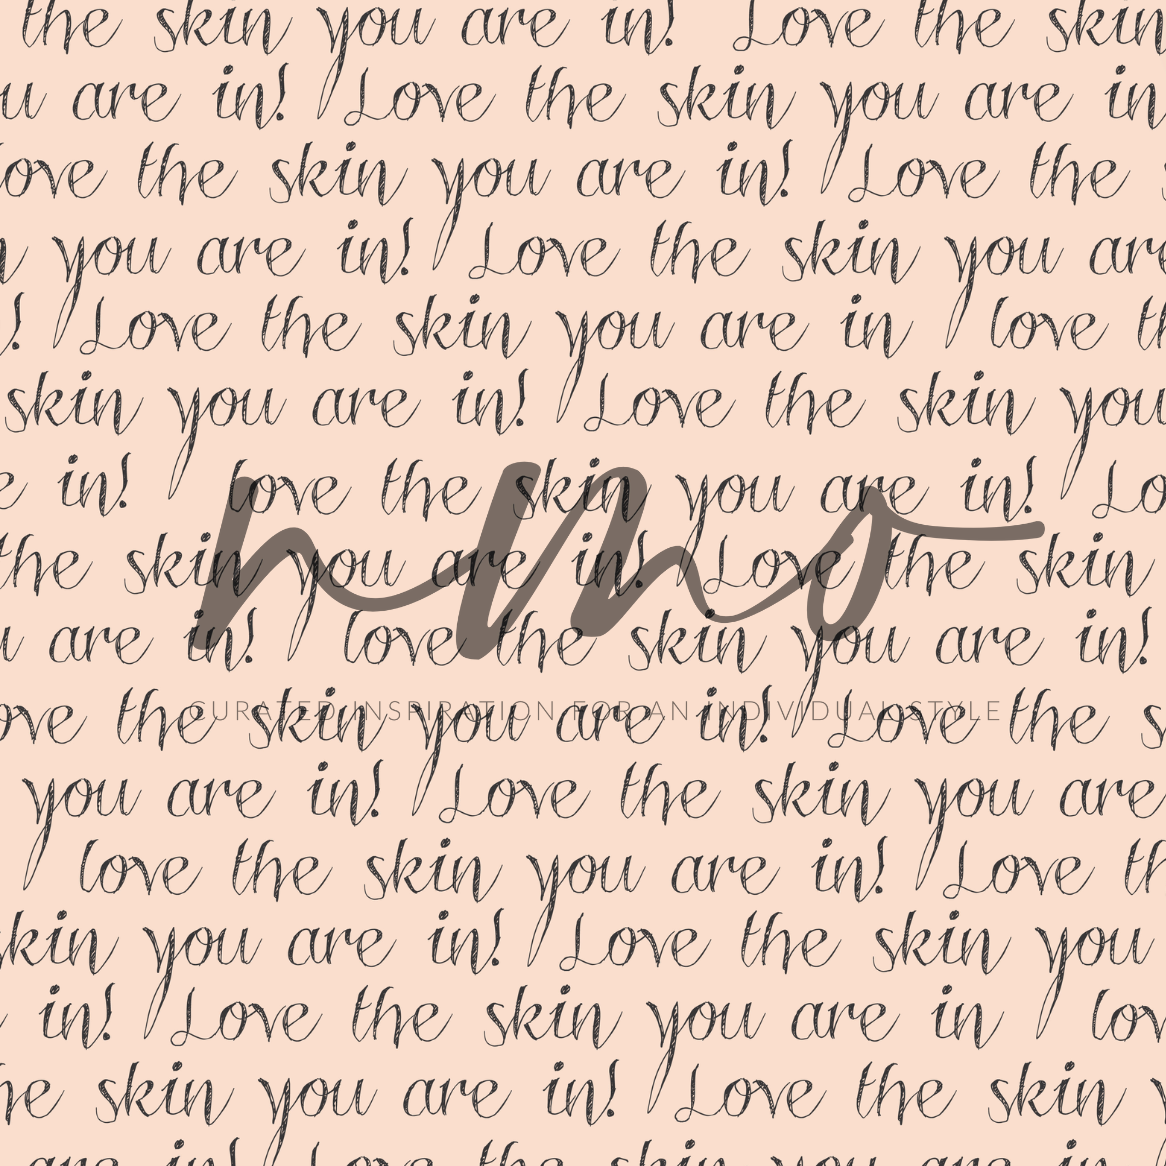 the skin you are in! Love the skin
u are in! Love the skin you are in
love the skin you are in! Love the
you are in! Love the skin you are
! Love the skin you are in love th
skin you are in! Love the skin you
e in! love the skin you are in! Lo
the skin you are in! Love the skin
u are in! love the skin you are in!
ove the skin you are in! Love the s
nmo
CURATED INSPIRATION FOR AN INDIVIDUAL STYLE
you are in! Love the skin you are
love the skin you are in! Love th
skin you are in! Love the skin you
in! Love the skin you are in lov
he skin you are in! Love the skin y
are in! Love the skin you are in